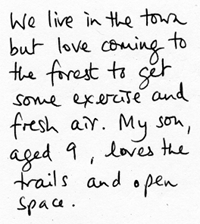 We live in the town
but love coming to
the forest to get
some exercise and
fresh air. My son,
aged 9, loves the
trails and open
space.